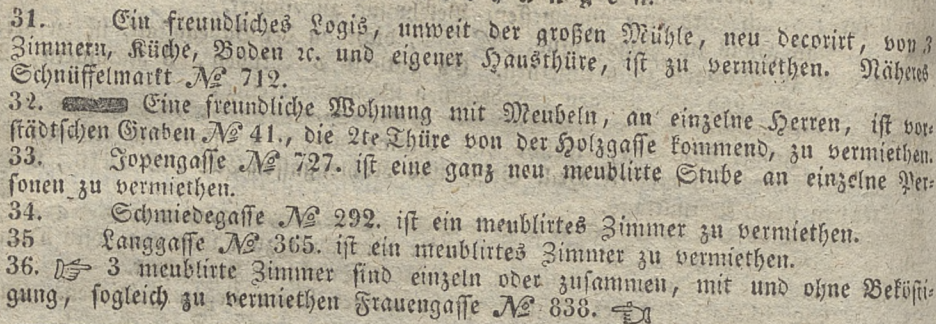 31. Ein freundliches Logis, unweit der großen Mühle, neu decorirt, von 3
Zimmern, Küche, Boden ꝛc. und eigener Hausthüre, ist zu vermiethen. Näheres
Schnüffelmarkt № 712.
32. Eine freundliche Wohnung mit Meubeln, an einzelne Herren, ist vor-
städtschen Graben № 41., die 2te Thüre von der Holzgasse kommend, zu vermiethen.
33. Jopengasse № 727. ist eine ganz neu meublirte Stube an einzelne Per-
sonen zu vermiethen.
34. Schmiedegasse № 292. ist ein meublirtes Zimmer zu vermiethen.
35 Langgasse № 365. ist ein meublirtes Zimmer zu vermiethen.
36. ☞ 3 meublirte Zimmer sind einzeln oder zusammen, mit und ohne Beköstigung-
gung, sogleich zu vermiethen Frauengasse № 838. ☜